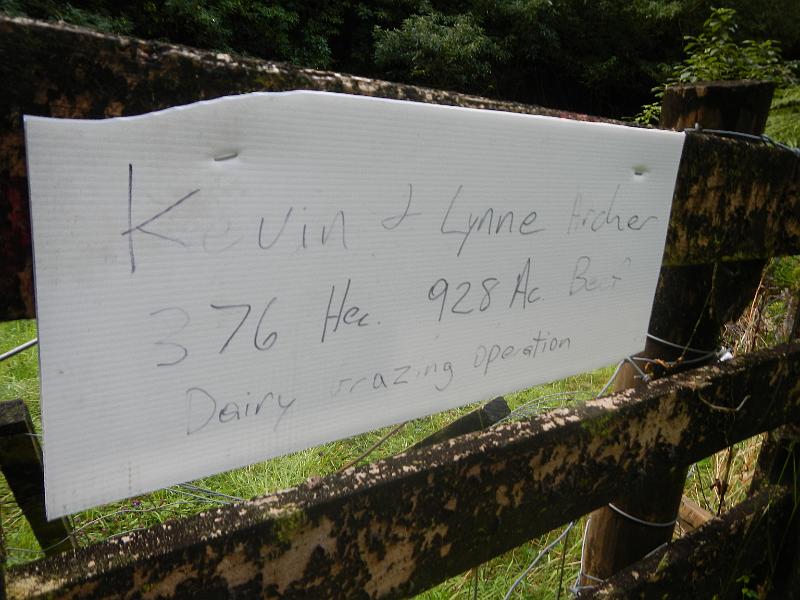 Kevin & Lynne Archer
376 Hec. 928 Ac. Beef
Dairy Grazing operation